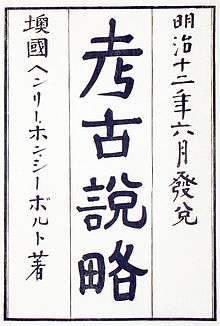 明治十二年六月發兌
考古說略
墺國ヘンリー、ホン、シーボルト著